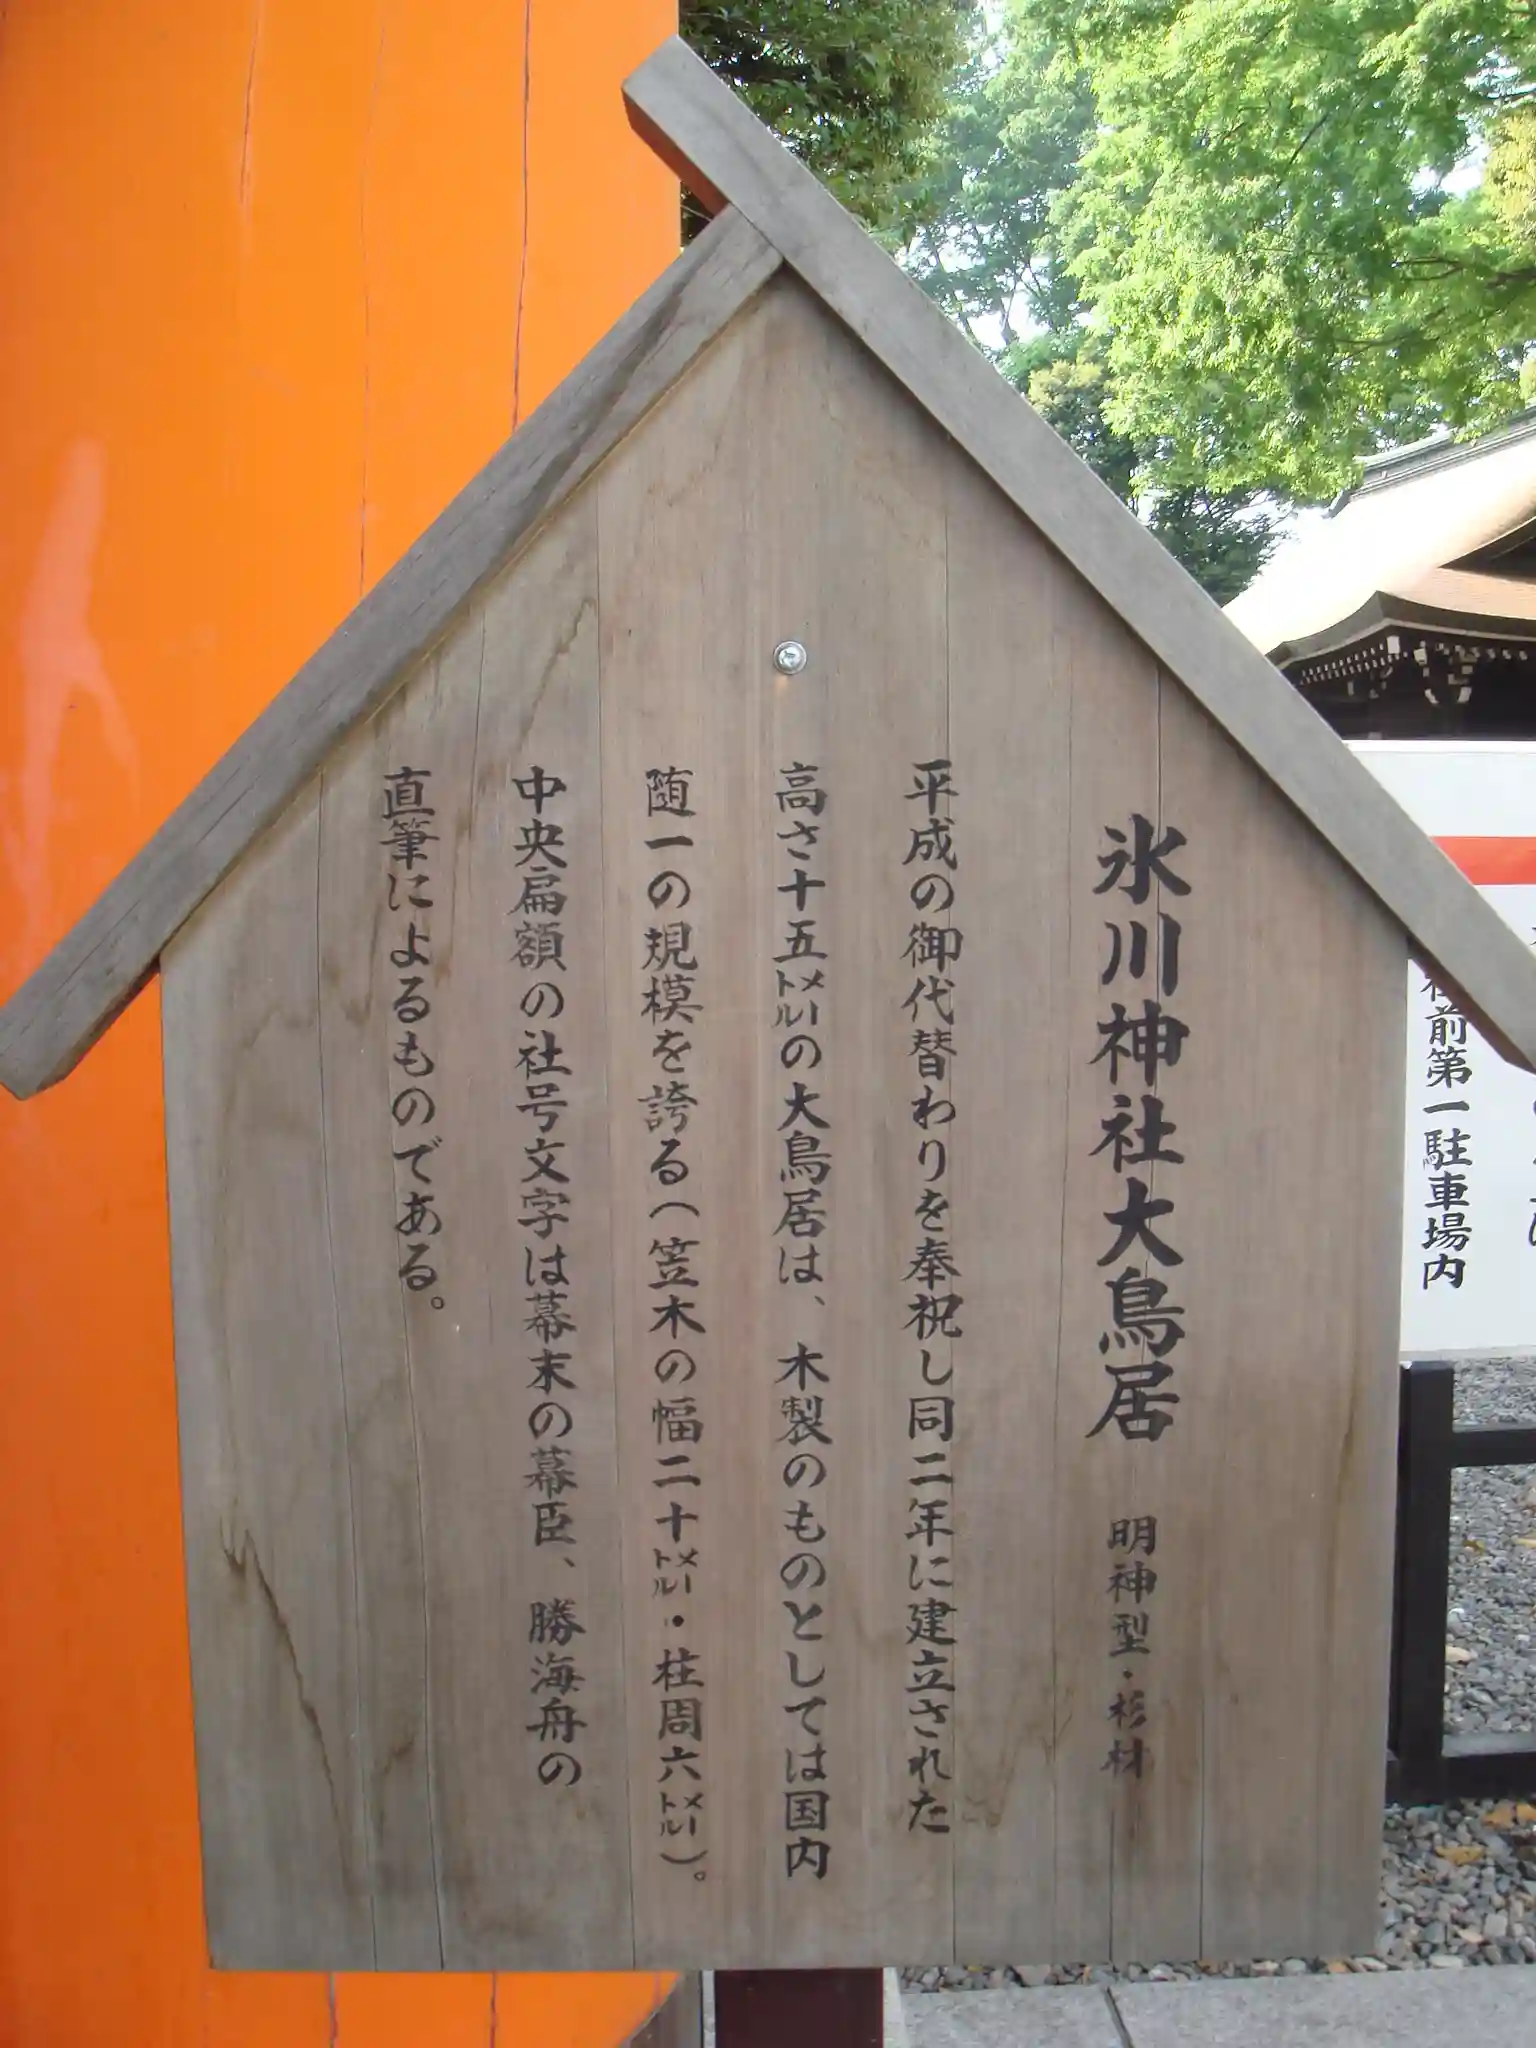 氷川神社大鳥居 明神型・杉材
平成の御代替わりを奉祝し同二年に建立された
高さ十五㍍の大鳥居は、木製のものとしては国内
随一の規模を誇る(笠木の幅二十㍍・柱周六㍍)。
中央扁額の社号文字は幕末の幕臣、勝海舟の
直筆によるものである。
前第一駐車場内